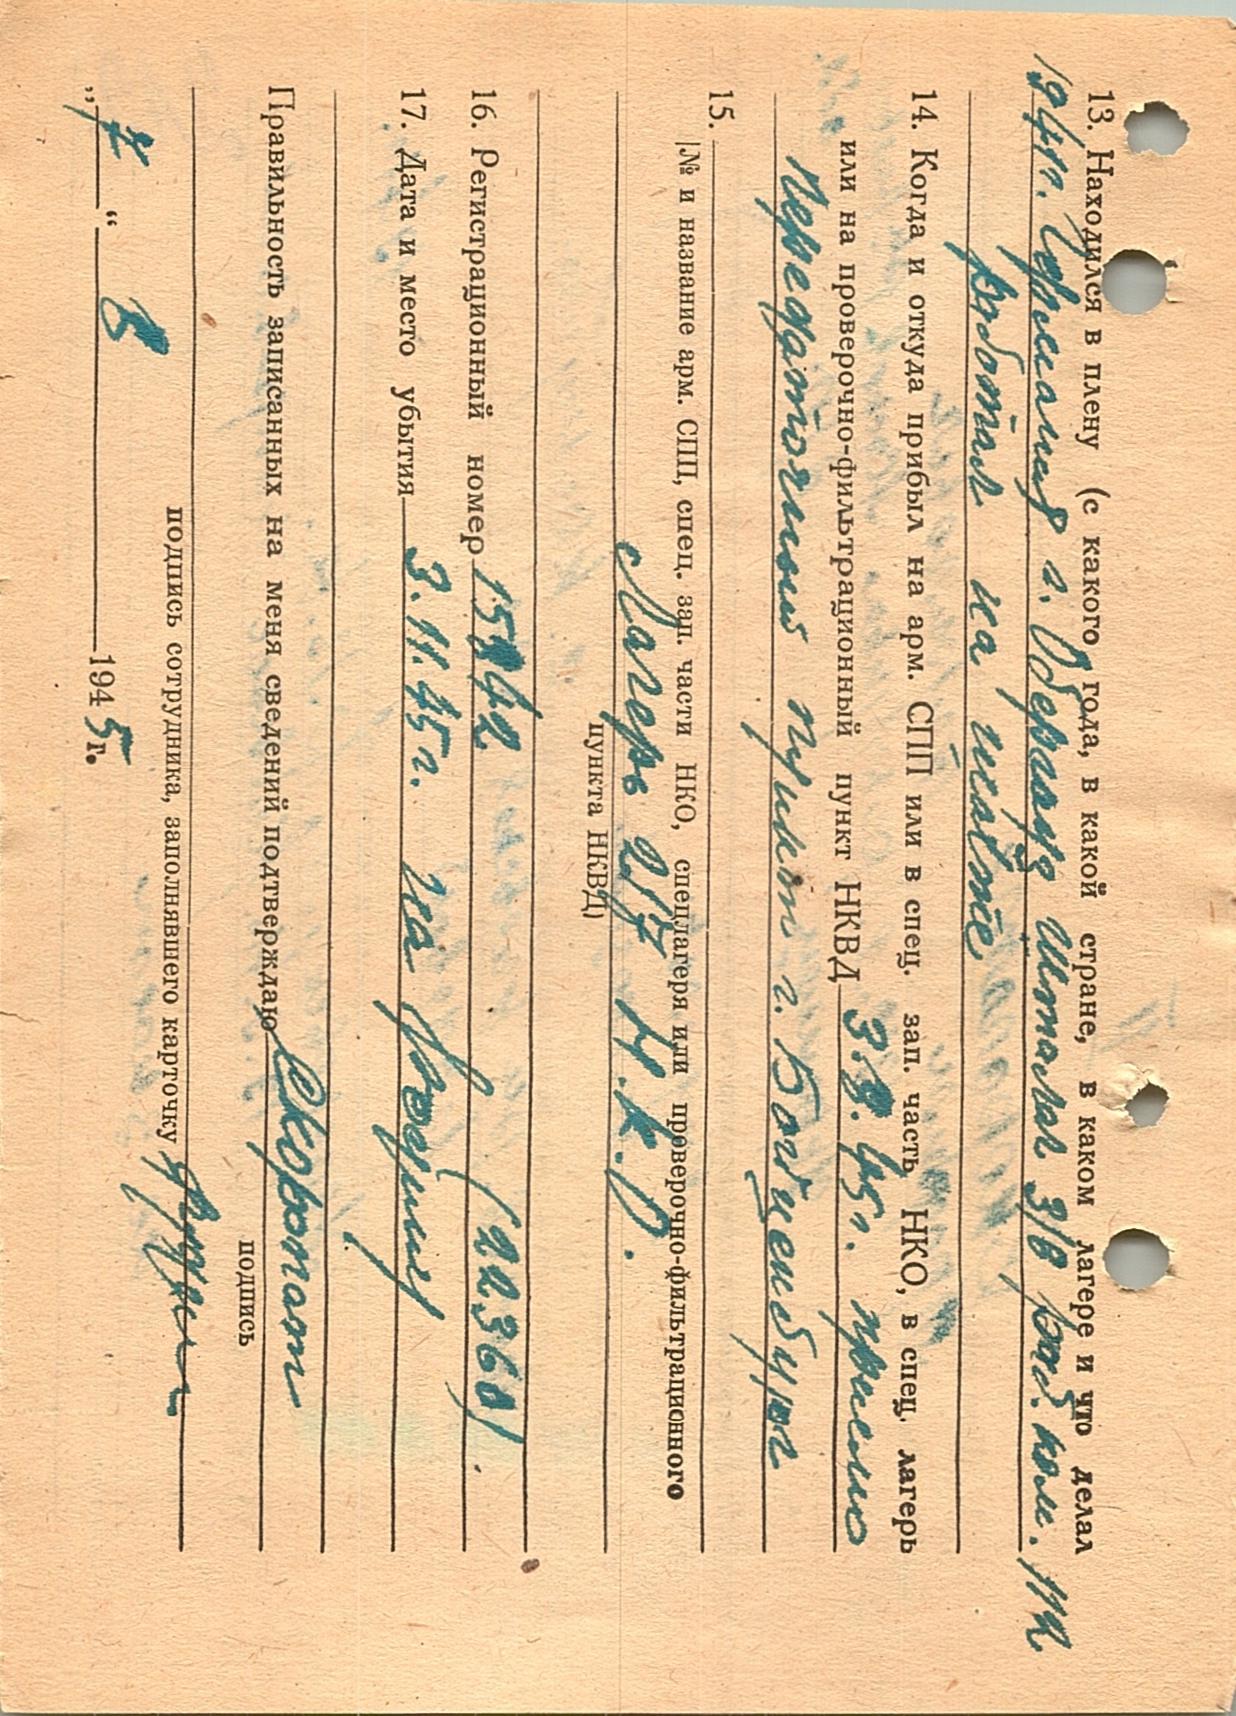 13. Находился в плену (с какого года, в какой стране, в каком лагере и что делал
1941г. Германия г. Обергоуз шталаг 3/в раб. ком.
работал на шахте
14. Когда и откуда прибыл на арм. СПП или в спец. зап. часть НКО, в спец. лагерь
или на проверочно-фильтрационный пункт НКВД 3.8.45г. приемно
Передаточный пункт г.
15.
(№ и название арм. СПП, спец. зап. части НКО, спецлагеря или проверочно-фильтрационного
Лагерь 217 Н.К.О.
пункта НКВД)
16. Регистрационный номер 15842 (22360)
17. Дата и место убытия 3.11.45г. на
Правильность записанных на меня сведений подтверждаю
подпись
подпись сотрудника, заполнявшего карточку
„7“ 8 1945г.